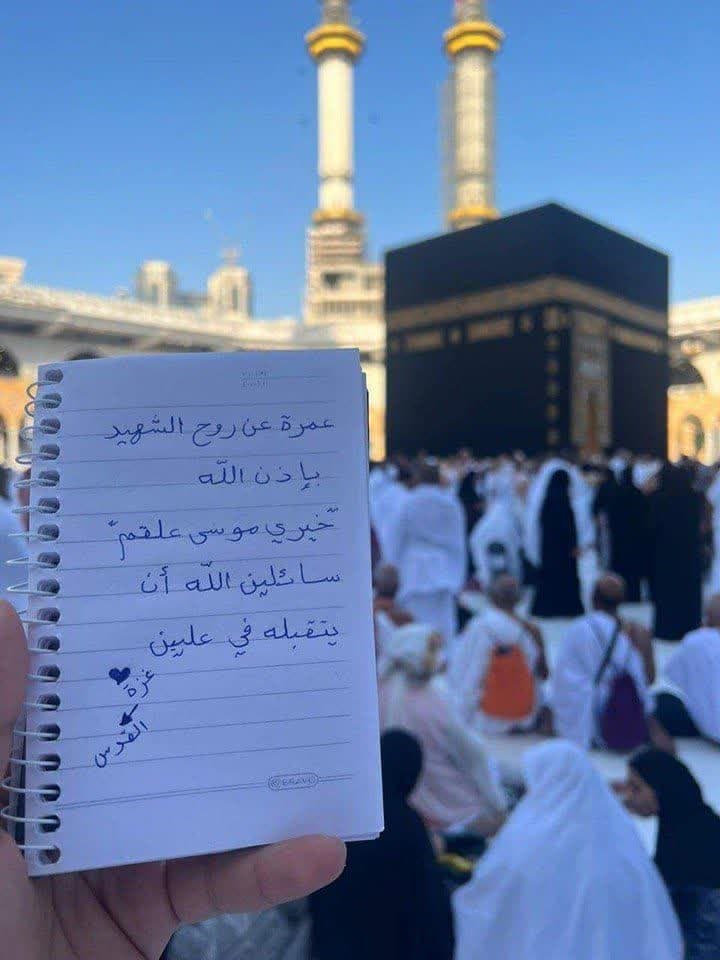 عمرة عن روح الشهيد
بإذن الله
"خيري موسى علقم"
سائلين الله أن
يتقبله في عليين
غزة
القدس